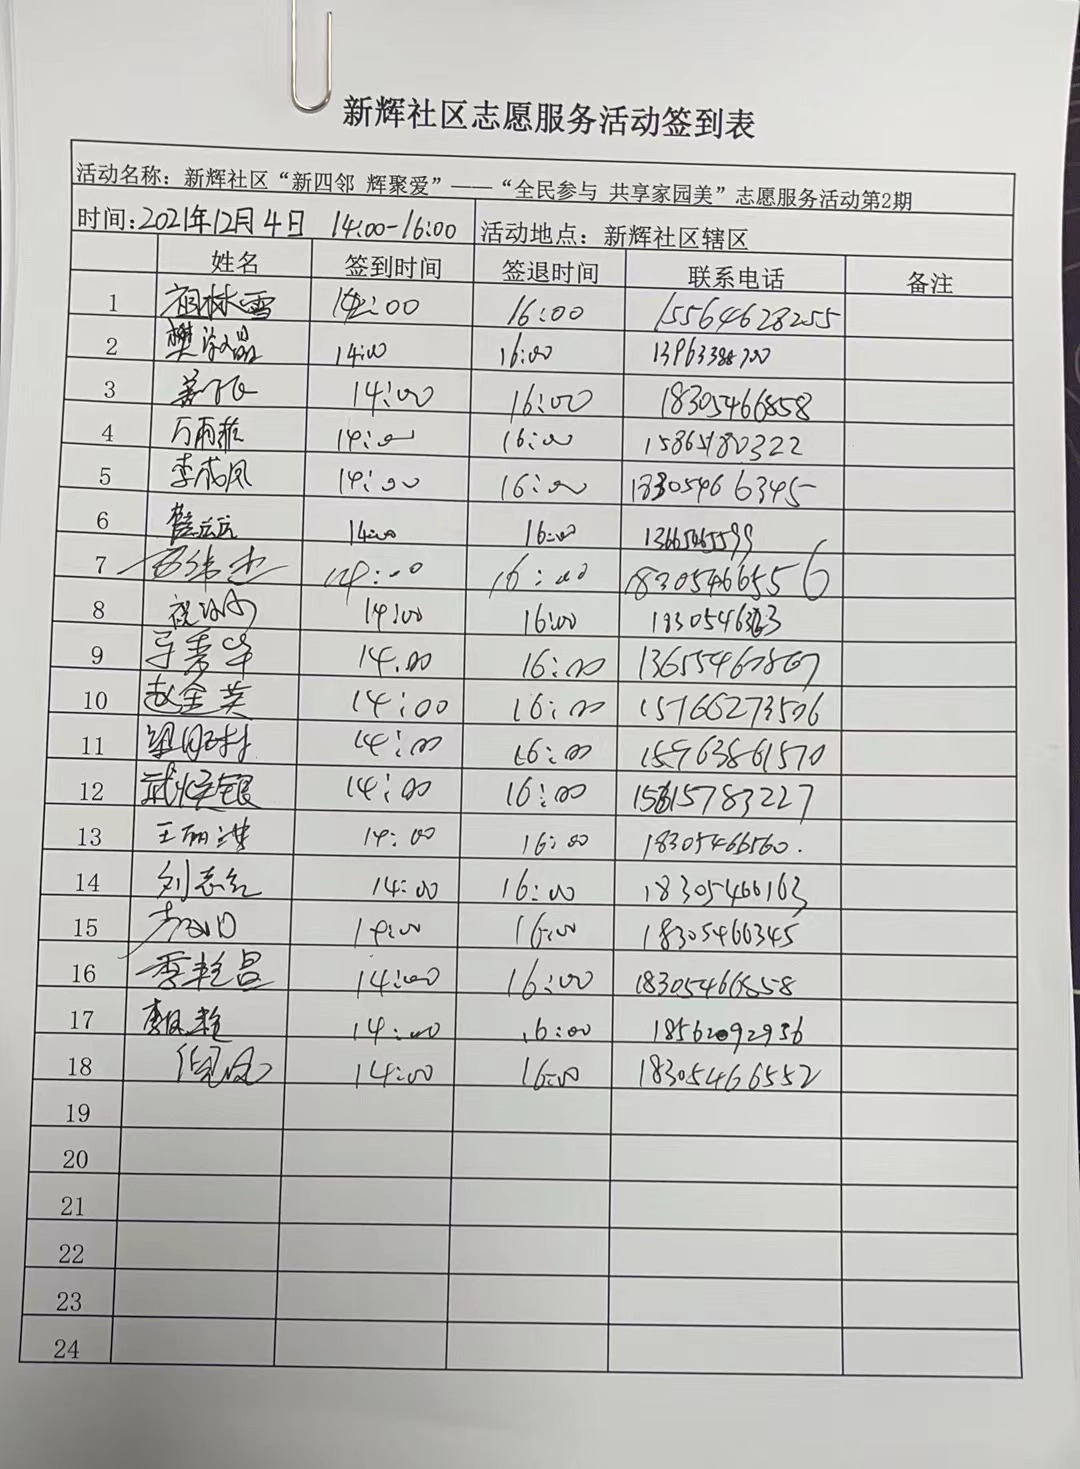 新辉社区志愿服务活动签到表
活动名称：新辉社区“新四邻 辉聚爱”——“全民参与 共享家园美”志愿服务活动第2期
时间:2021年12月4日 14:00-16:00 活动地点：新辉社区辖区
姓名 签到时间 签退时间 联系电话 备注
1 14:00 16:00 15564628255
2 14:00 16:00
3 14:00 16:00 18305466858
4 万雨雅 14:00 16:00 15865180322
5 李成凤 14:00 16:00 18305466345
6 14:00 16:00
7 14:00 16:00 18305466556
8 14:00 16:00
9 马秀华 14.00 16:00
10 赵金英 14:00 16:00 15766273506
11 14:00 16:00 15963861570
12 14:00 16:00 15615783227
13 王丽洪 14:00 16:00 18305466560.
14 刘志红 14:00 16:00 18305466163
15 14:00 16:00 18305466345
16 季乾昌 14:00 16:00 18305466858
17 14:00 16:00 18562092936
18 倪凤 14:00 16:00 18305466552
19
20
21
22
23
24